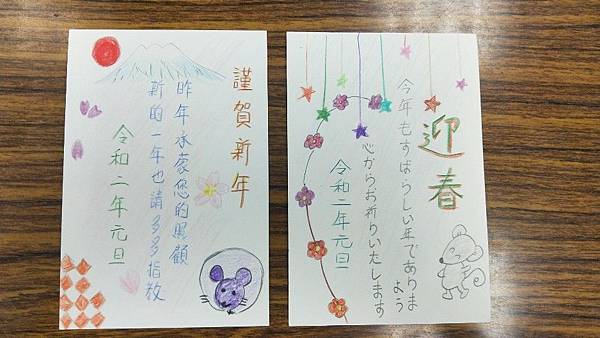 謹賀新年
昨年承蒙您的照顧
新的一年也請多多指教
令和二年元旦
迎春
今年もすばらしい年でありま
よう
心からお祈りいたします
令和二年元旦